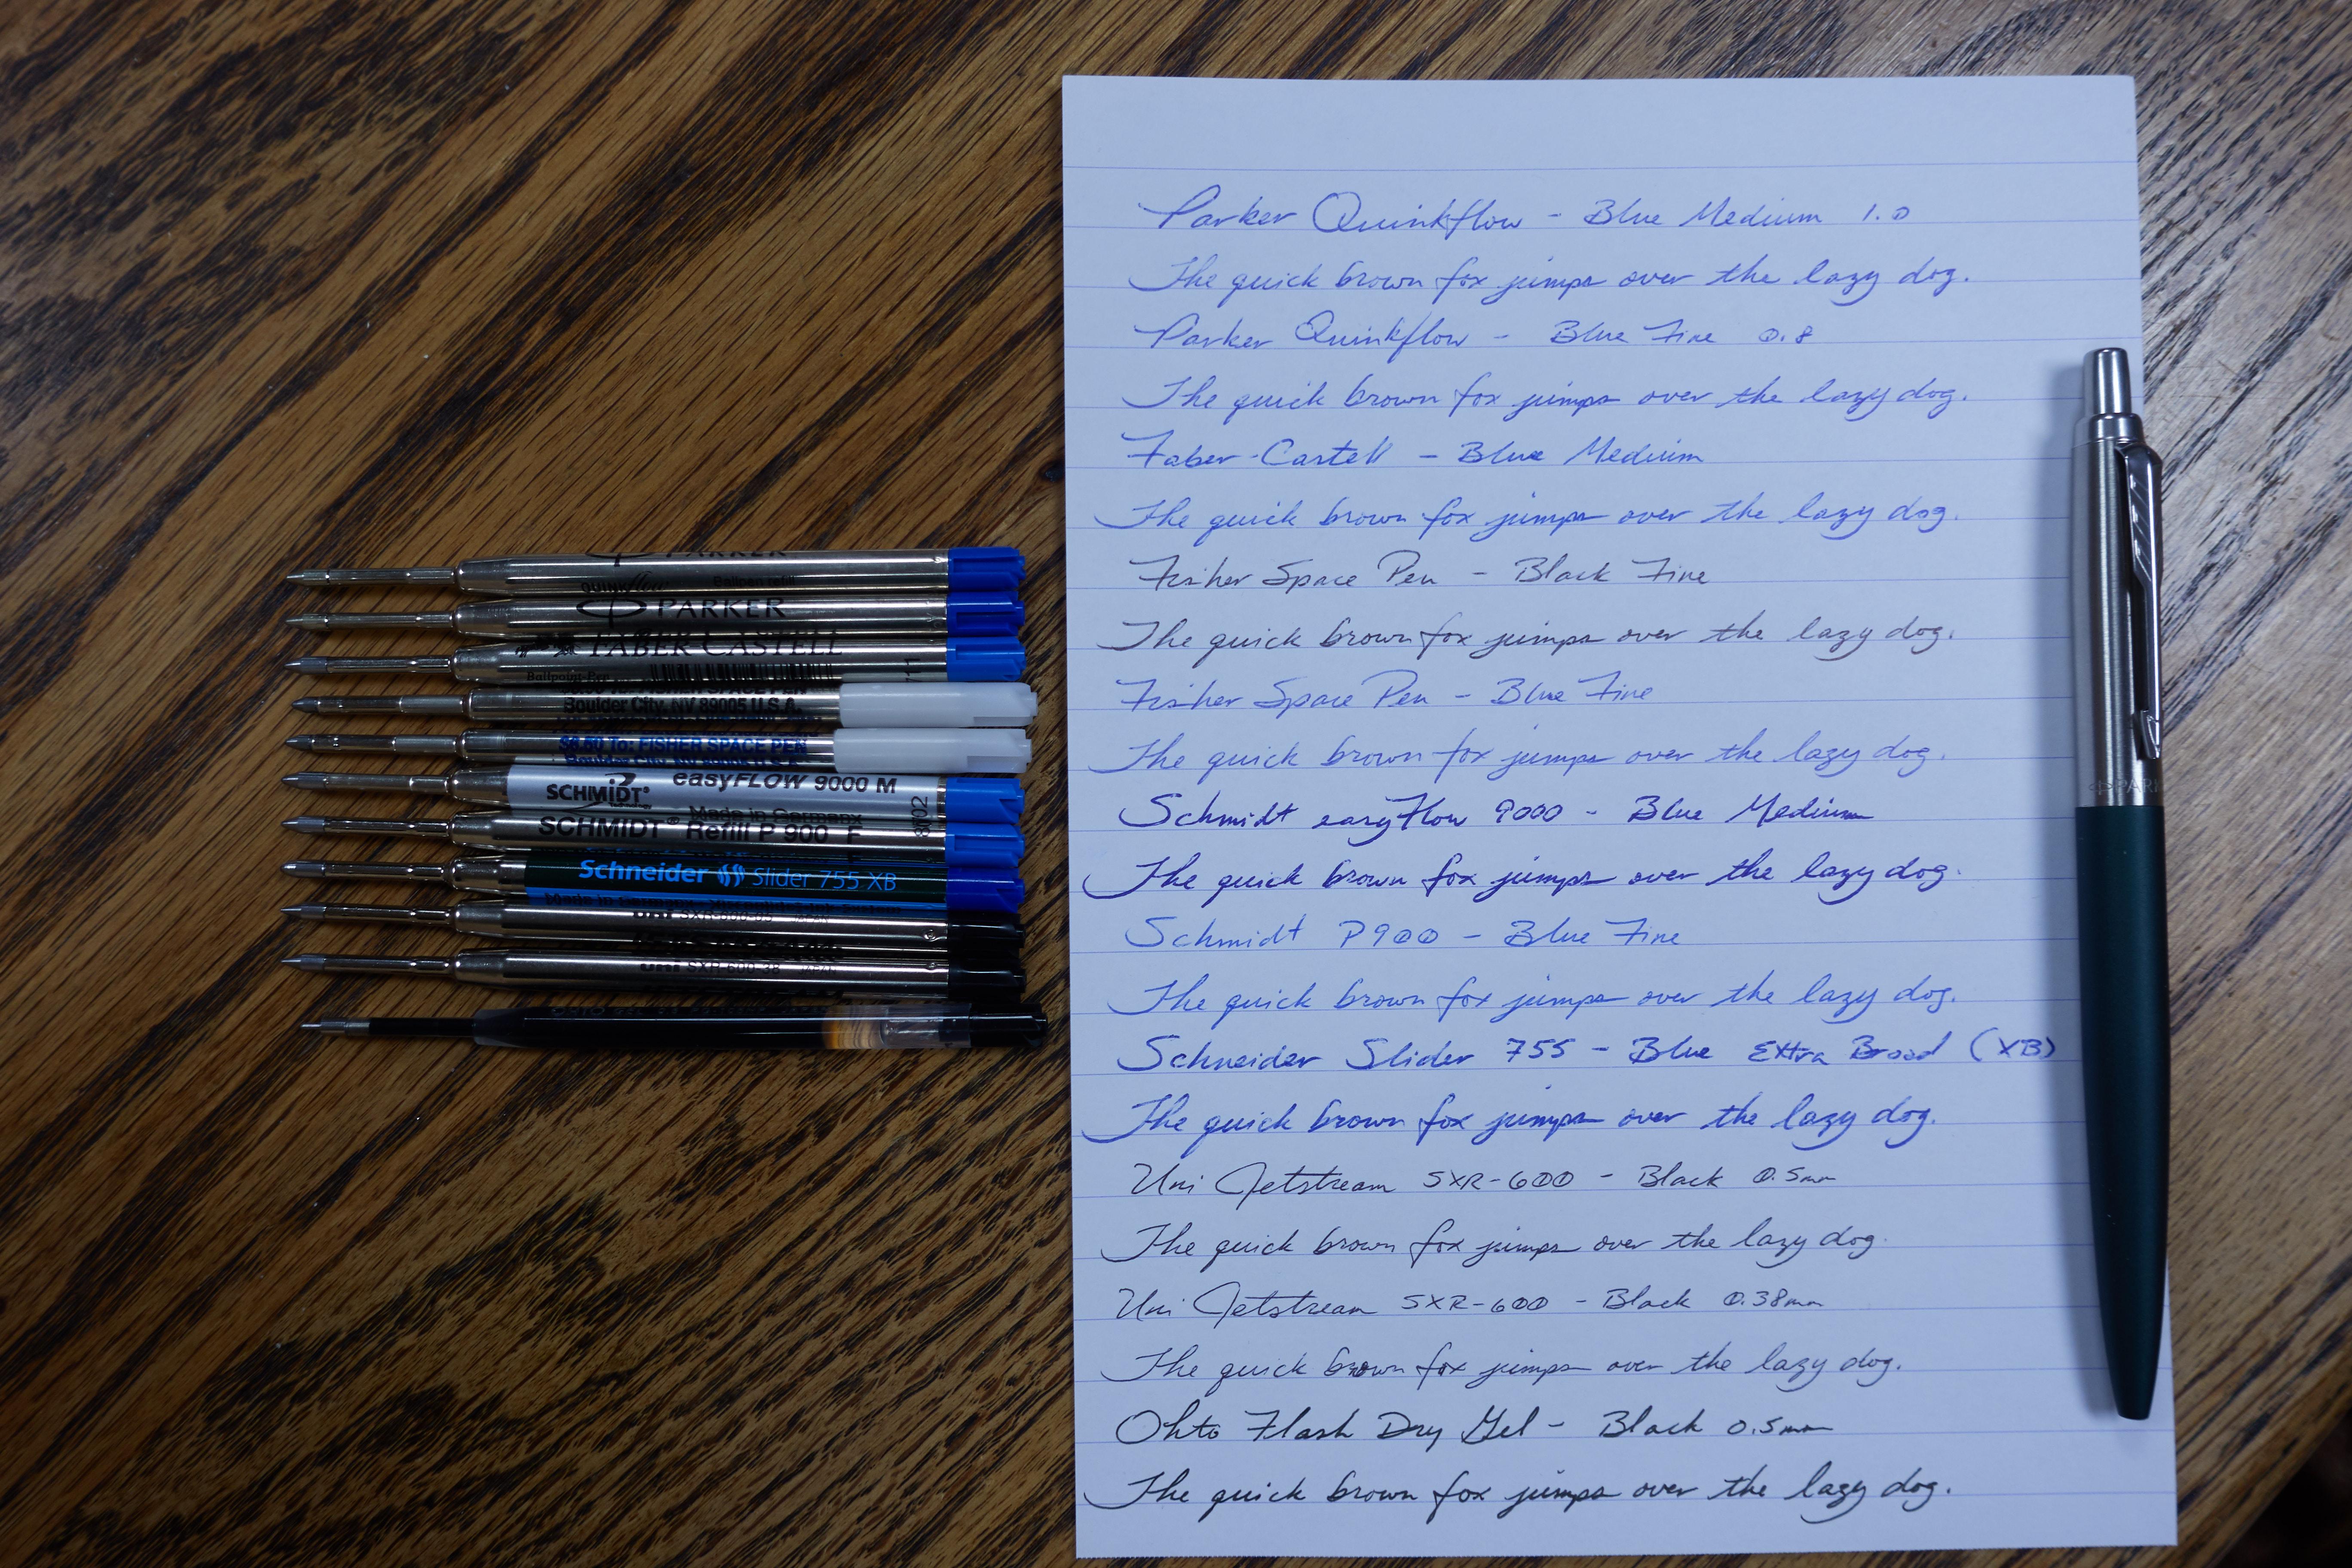 PARKER
QUINKflow Ballpen refill
PARKER
FABER-CASTELL
Ballpoint Pen
Boulder City, NV 89005 U.S.A.
$6.50 To: FISHER SPACE PEN
easyFLOW 9000 M
SCHMiDT®
Made in Germany
SCHMIDT® Refill P 900 F
Schneider Slider 755 XB
uni SXR-600-05 JAPAN
uni SXR-600-38 JAPAN
Parker Quinkflow - Blue Medium 1.0
The quick brown fox jumps over the lazy dog.
Parker Quinkflow - Blue Fine 0.8
The quick brown fox jumps over the lazy dog.
Faber-Castell - Blue Medium
The quick brown fox jumps over the lazy dog.
Fisher Space Pen - Black Fine
The quick brown fox jumps over the lazy dog.
Fisher Space Pen - Blue Fine
The quick brown fox jumps over the lazy dog.
Schmidt easyFlow 9000 - Blue Medium
The quick brown fox jumps over the lazy dog.
Schmidt P900 - Blue Fine
The quick brown fox jumps over the lazy dog.
Schneider Slider 755 - Blue Extra Broad (XB)
The quick brown fox jumps over the lazy dog.
Uni Jetstream SXR-600 - Black 0.5mm
The quick brown fox jumps over the lazy dog.
Uni Jetstream SXR-600 - Black 0.38mm
The quick brown fox jumps over the lazy dog.
Ohto Flash Dry Gel - Black 0.5mm
The quick brown fox jumps over the lazy dog.